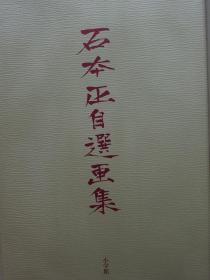 石本正自選画集
小学館